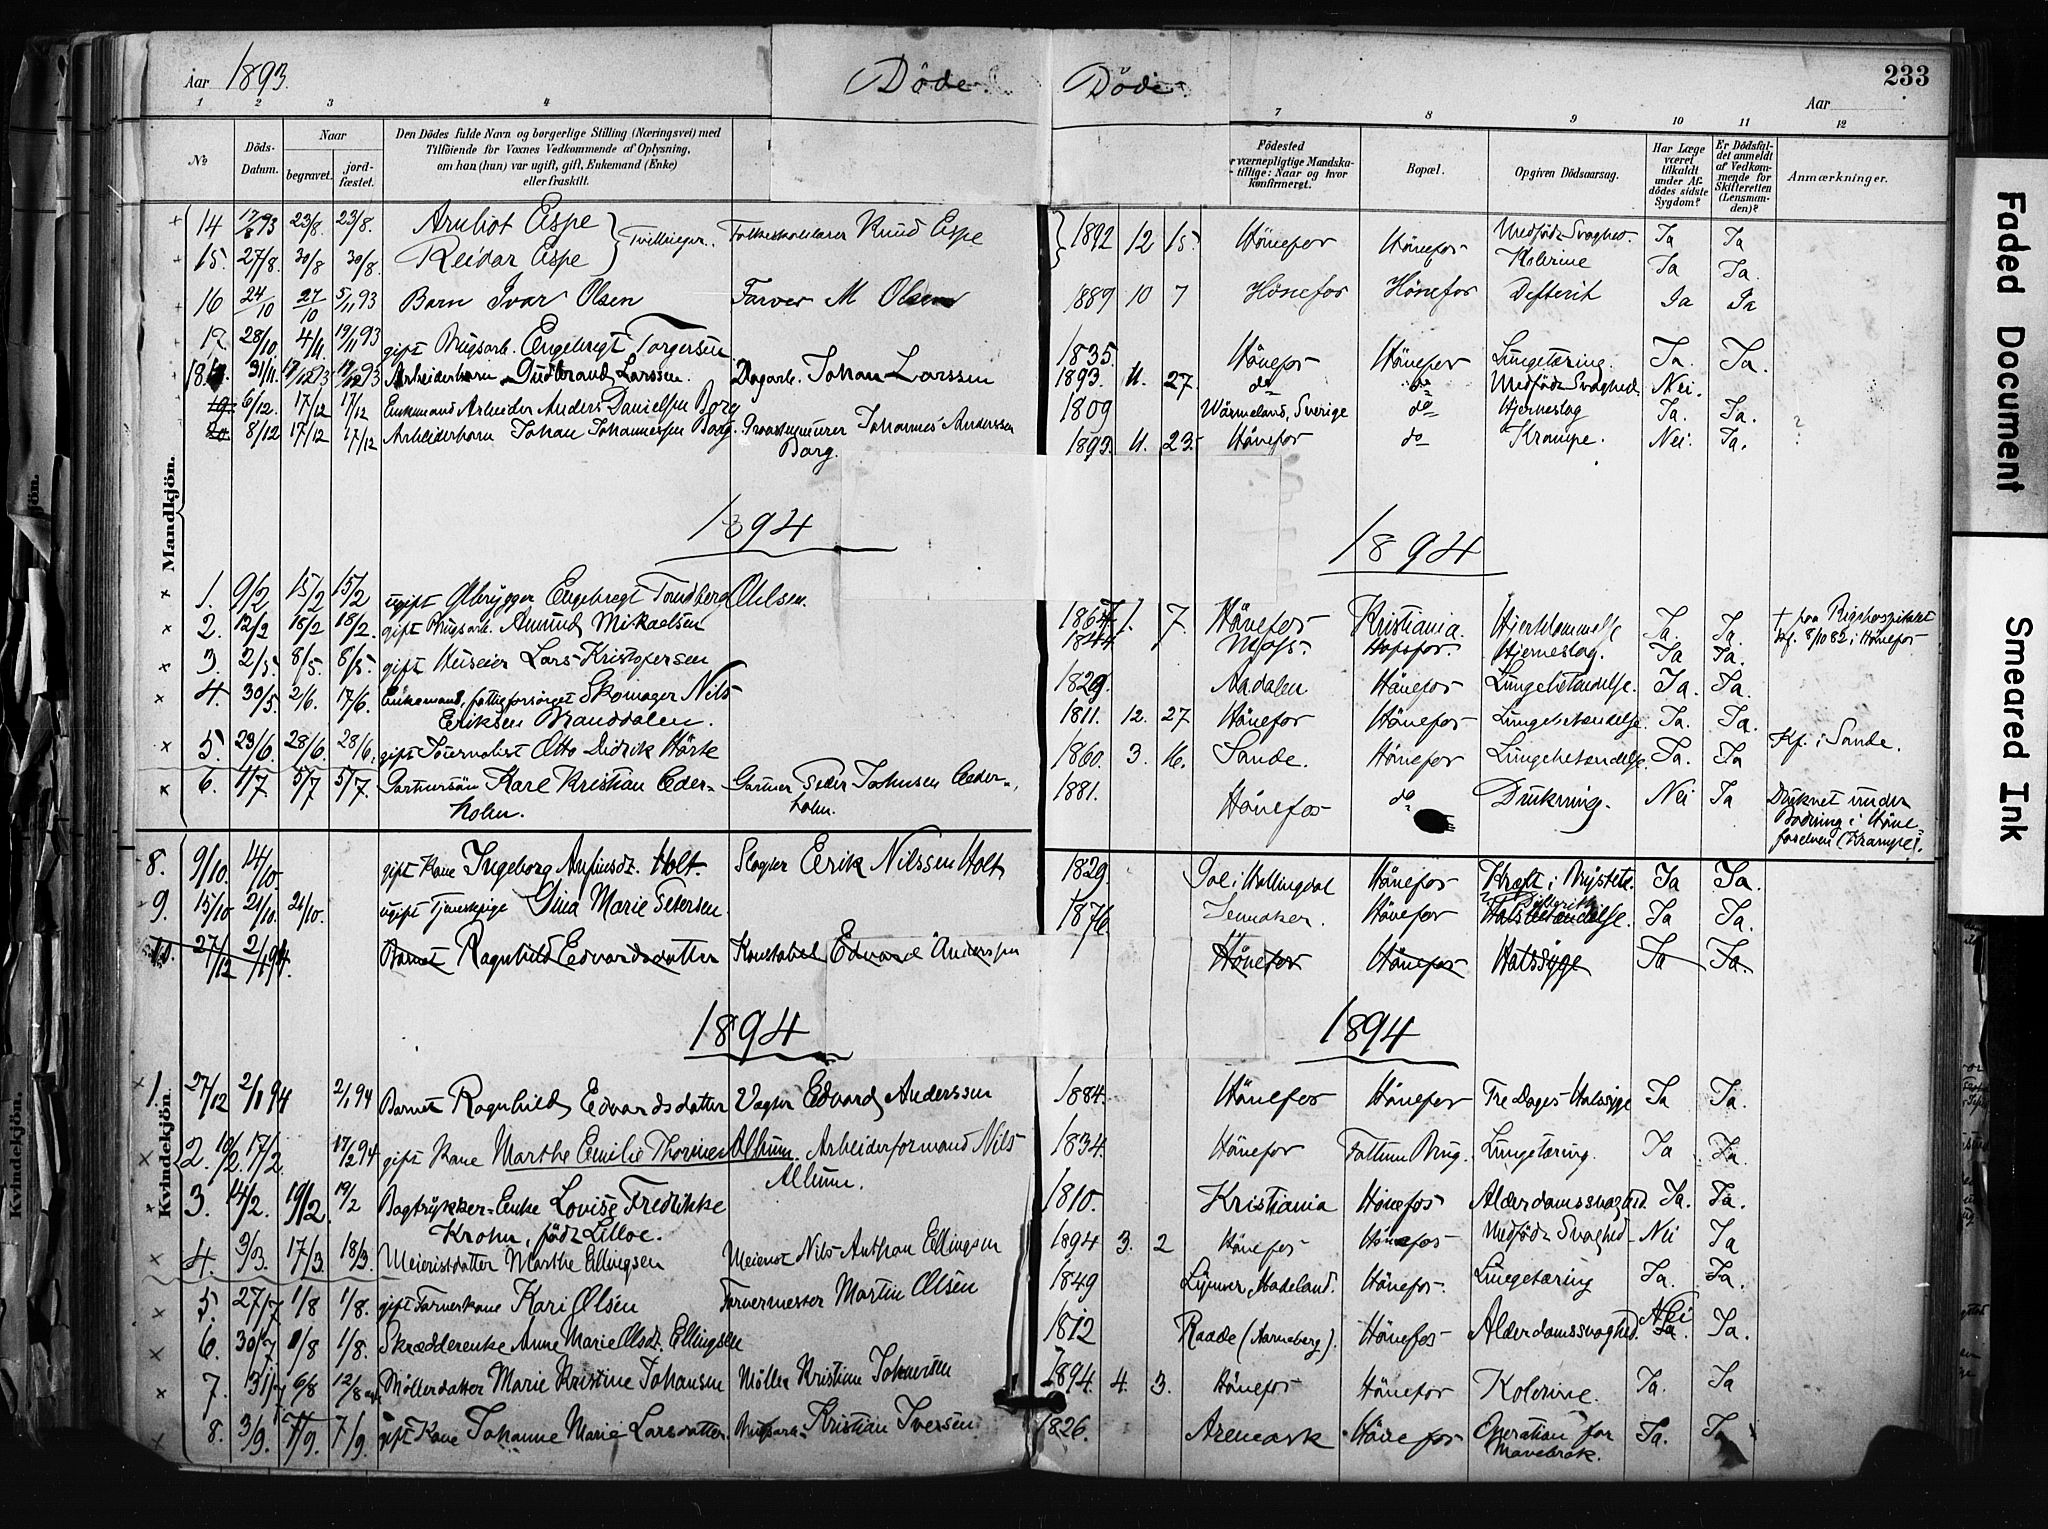 Aar 1893. Døde. Døde. Aar 233
1 2 3 4 7 8 9 10 11 12
No
Döds-Datum.
Naar begravet. jordfæstet.
Den Dödes fulde Navn og borgerlige Stilling (Næringsvei) med
Tilföiende for Voxnes Vedkommende af Oplysning,
om han (hun) var ugift, gift, Enkemand (Enke)
eller fraskilt.
Födested
værnepligtige Mandska-
tillige: Naar og hvor
konfirmeret.
Bopæl.
Opgiven Dödsaarsag.
Har Læge været tilkaldt under Afdödes sidste Sygdom?
Er Dödsfaldet anmeldt af Vedkommende for Skifteretten (Lensmanden)?
Anmærkninger.
Mandkjön.
14 17/8 93 23/8. 23/8. Arnliot Espe } Tvillinger. Folkeskolelærer Knud Espe } 1892 12 15. Hönefos Hönefos Medfödt Svaghed. Ja Ja
15. 27/8. 30/8 30/8. Reidar Espe Kolerine Ja Ja.
16 24/10 27/10 5/11 93 Barn Ivar Olsen Farver M Olsen 1889 10 7 Hönefos Hönefos Defterit Ja Ja
17 28/10 4/11. 19/11 93 gift Brugsarb. Engebregt Torgersen. 1835. Hönefos Hönefos Lungetæring. Ja. Ja.
18. 31/11. 17/12 93 17/12 93 Arbeiderbarn Gudbrand Larssen. Dagarb. Johan Larssen 1893. 11. 27. do do Medfödt Svaghed Nei.
19. 6/12. 17/12 17/12 Enkemand Arbeider Anders Danielsen Borg 1809 Wärmeland, Sverige do Hjerneslag Ja. Ja. ?
20 8/12 17/12 17/12 Arbeiderbarn Johan Johannessen Borg. Graastensmurer Johannes Anderssen 1893. 11. 23. Hönefos do Krampe. Nei. Ja.
Borg.
1894 1894
1. 9/2 15/2 15/2 ugift Ölbrygger Engebregt Trudberg Ohlsen. 1864. 1. 7. Hönefos Kristiania. Hjerklammelse Ja. Ja. + paa Rigshospitalet
2. 12/2 18/2 18/2. gift Brugsarb. Amund Mikaelsen 1844 Moss. Hofsfos. Hjerneslag. Ja Ja. Kf. 8/10 82 i Hönefos
3. 2/5. 8/5. 8/5. gift Huseier Lars Kristofersen 1829. Aadalen Hönefos Lungebetændelse. Ja. Ja.
4. 30/5. 2/6. 17/6. Enkemand, fattigforsörget Skomager Nils 1811. 12. 27. Hönefos Hönefos Lungebetændelse Ja. Ja
Eriksen Branddalen.
5. 23/6. 28/6. 28/6. gift Journalist Otto Didrik Hörte 1860. 3. 16. Sande. Hönefos Lungebetændelse. Ja. Ja Kf. i Sande.
6. 1/7. 5/7 5/7. Gartnersön Karl Kristian Ceder- Gartner Peder Johnsen Ceder- 1881. Hönefos do Drukning. Nei Ja Druknet under
holm. holm. Badning i Höne-
foselven (Krampe).
Kvindekjön.
8. 9/10. 14/10. gift Kone Ingeborg Arfinsdt. Holt. Slagter Eerik Nilssen Holt 1829. Gol i Hallingdal Hönefos Kræft i Brystet. Ja Ja.
9. 15/10 21/10. 21/10. ugift Tjenestepige Gina Marie Petersen. 1876. Jevnaker. Hönefos Difterit Halsbetændelse. Ja Ja
10. 27/12 2/1 94. Barnet Ragnhild Edvardsdatter Konstabel Edvard Anderssen Hönefos Hönefos Halssyge Ja Ja.
1894 1894
1. 27/12 2/1 94 2/1 94 Barnet Ragnhild Edvardsdatter Vægter Edvard Anderssen 1884. Hönefos Hönefos Tre Dages Halssyge Ja Ja.
2. 10/2. 17/2. 17/2 94 gift Kone Marthe Emilie Thorine Album. Arbeiderformand Nils 1834. Hönefos Fattum Brug. Lungetæring. Ja Ja.
Album.
3. 14/2. 19/2. 19/2 Bogtrykker-Enke Lovise Fredrikke 1810. Kristiania Hönefos Alderdomssvaghed. Ja. Ja.
Krohn, född Lilloe.
4. 3/3. 17/3. 18/3. Meieristdatter Marthe Ellingsen Meierist Nils Anthon Ellingsen 1894 3. 2 Hönefos Hönefos Medfödt Svaghed Nei Ja
5. 27/7 1/8 1/8. gift Farverkone Kari Olsen Farvermester Martin Olsen 1849 Lunner, Hadeland. Hönefos. Lungetæring Ja. Ja.
6. 30/7 1/8 1/8. Skrædderenke Anne Marie Olsdt. Ellingsen 1812 Raade (Aarneberg). Hönefos Alderdomssvaghed. Nei Ja. Ja.
7. 31/7 6/8 12/8 Möllerdatter Marie Kristine Johansen Möller Kristian Johansen 1894. 4. 3. Hönefos Hönefos Kolerine. Ja. Ja
8. 3/9. 7/9. 7/9. gift Kone Johanne Marie Larsdatter. Brugsarb. Kristian Iversen. 1826. Aremark Hönefos Operation for Ja. Ja
Mavebrok.
Kvindekjön.
Faded Document
Smeared Ink